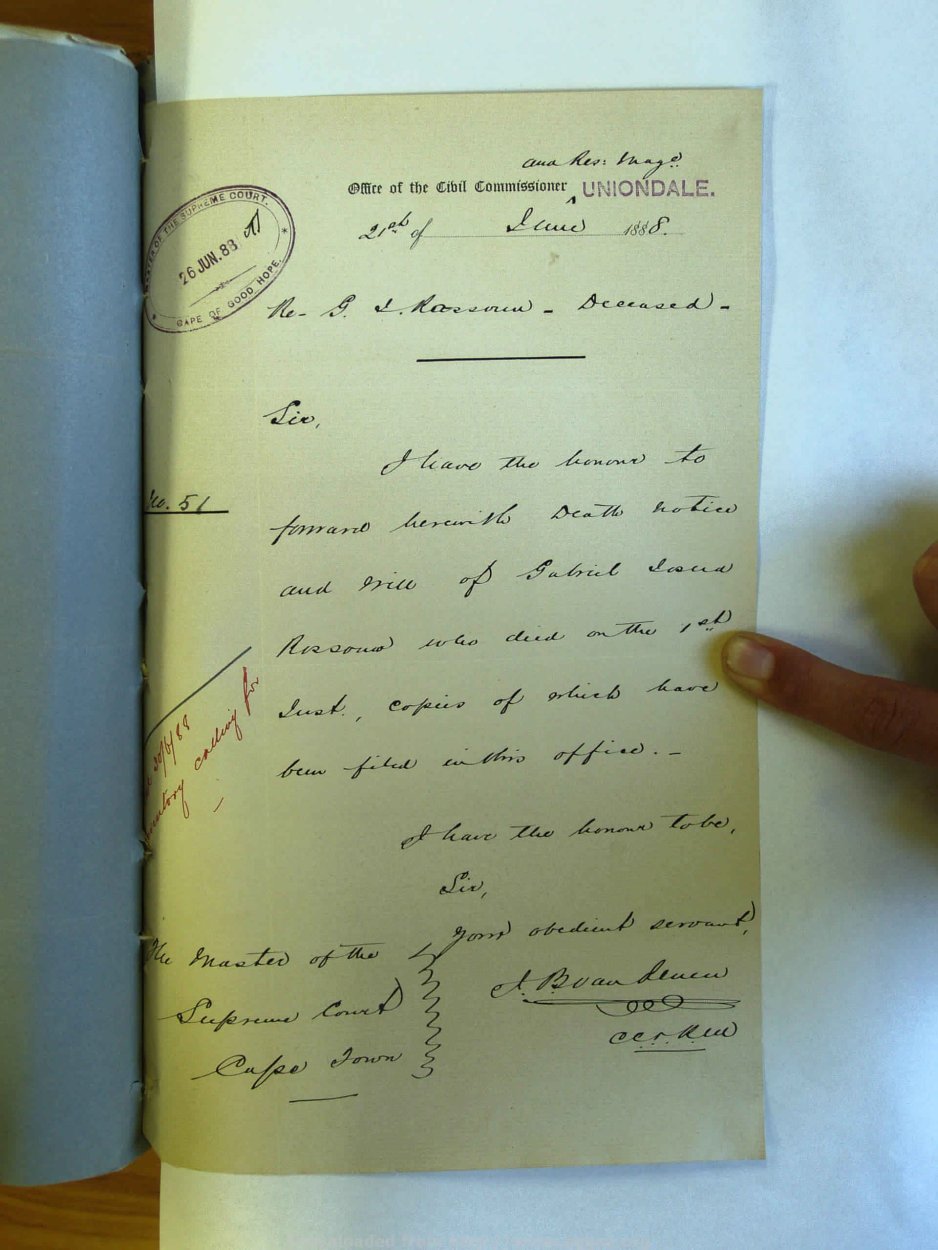 and Res: Mage
Office of the Civil Commissioner UNIONDALE.
21st of June 1888.
MASTER OF THE SUPREME COURT.
26 JUN. 88
CAPE OF GOOD HOPE.
Re - G. I. Rossouw - Deceased -
Sir,
I have the honour to
No. 51
forward herewith Death Notice
and Will of Gabriel Josua
Rossouw who died on the 1st
Inst., copies of which have
been filed in this office. -
30/6/88
calling for
I have the honour to be,
Sir,
Your obedient servant,
J. B van Renen
CC & RM
The Master of the
Supreme Court
Cape Town